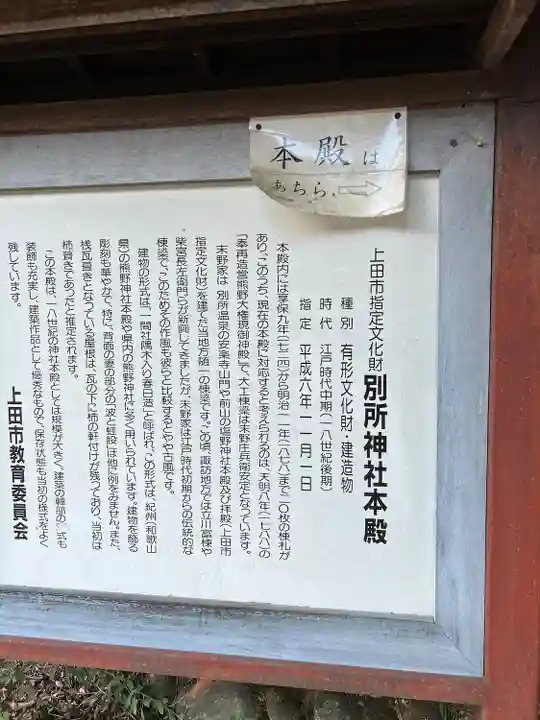 本殿は
あちら、⇨
上田市指定文化財 別所神社本殿
種別 有形文化財・建造物
時代 江戸時代中期(一八世紀後期)
指定 平成六年一一月一日
本殿内には享保九年(一七二四)から明治一一年(一八七八)まで一〇枚の棟札が
あり、このうち、現在の本殿に対応すると考えられるのは、天明八年(一七八八)の
「奉再造営熊野大権現御神殿」で、大工棟梁は末野庄兵衛安定となっています。
末野家は、別所温泉の安楽寺山門や前山の塩野神社本殿及び拝殿(上田市
指定文化財)を建てた当地方随一の棟梁です。この頃、諏訪地方では立川富棟や
柴宮長左衛門らが新興してきましたが、末野家は江戸時代初期からの伝統的な
棟梁で、このためその作風も彼らと比較するとやや古風です。
建物の形式は、「一間社隅木入り春日造」と呼ばれ、この形式は、紀州(和歌山
県)の熊野神社本殿や県内の熊野神社に多く用いられています。建物を飾る
彫刻も華やかで、特に、背面の妻の部分の「波と蛙股」は他に例をみません。また、
桟瓦葺きとなっている屋根は、瓦の下に杮の軒付けが残っており、当初は
杮葺きであったと推定されます。
この本殿は、一八世紀の神社本殿としては規模が大きく、建築の細部の様式も
装飾も充実し、建築作品として優秀なもので、保存状態も当初の様式をよく
残しています。
上田市教育委員会